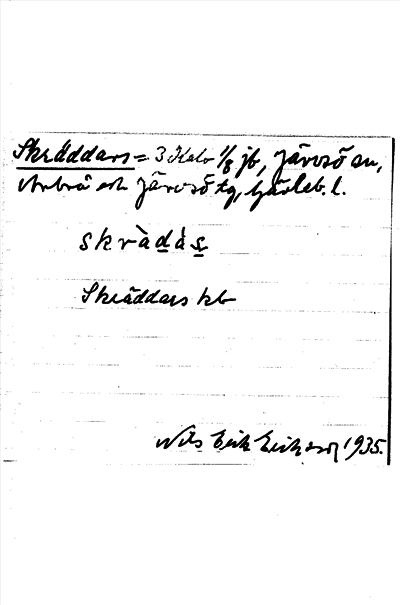 Skräddars = 3 Kalv 1/8 jb, Järvsö sn,
Arbrå och Järvsö tg, Gävleb. l.
skràdás
Skräddars kb
Nils Erik Eriksson 1935.